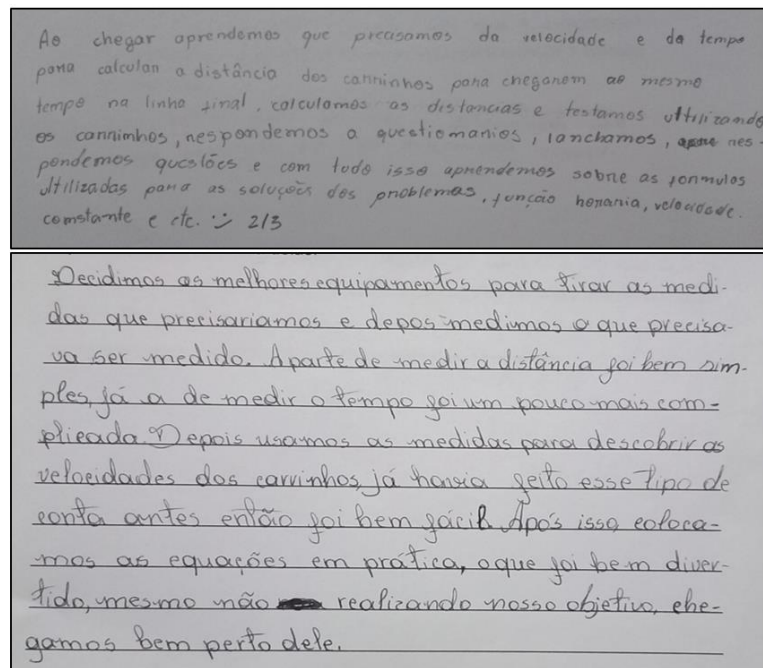 Ao chegar aprendemos que precisamos da velocidade e do tempo
para calcular a distância dos carrinhos para chegarem ao mesmo
tempo na linha final, calculamos as distancias e testamos ultilizando
os carrinhos, respondemos a questionarios, lanchamos, res-
pondemos questões e com todo isso aprendemos sobre as formulas
ultilizadas para as soluções dos problemas, função horaria, velocidade
constante e etc. :) 2/3
Decidimos os melhores equipamentos para tirar as medi-
das que precisariamos e depos medimos o que precisa-
va ser medido. A parte de medir a distância foi bem sim-
ples, já a de medir o tempo foi um pouco mais com-
plicada. Depois usamos as medidas para descobrir as
velocidades dos carrinhos, já havia feito esse tipo de
conta antes então foi bem fácil. Após isso, coloca-
mos as equações em prática, o que foi bem diver-
tido, mesmo não realizando nosso objetivo, che-
gamos bem perto dele.